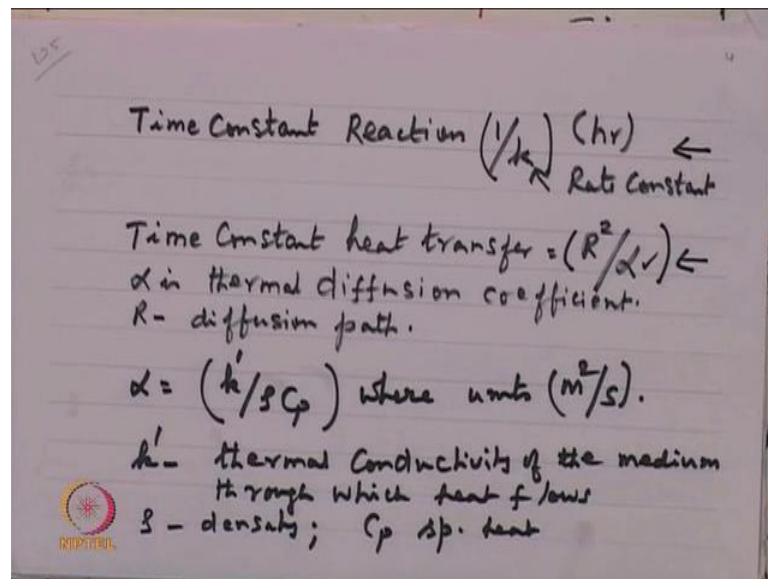 125
4
Time Constant Reaction (1/k) (hr) ←
Rate Constant
Time Constant heat transfer = (R²/α) ←
α is thermal diffusion coefficient.
R - diffusion path.
α = (k'/ρCp) where units (m²/s).
k' - thermal Conductivity of the medium
through which heat flows
ρ - density; Cp sp. heat
NPTEL